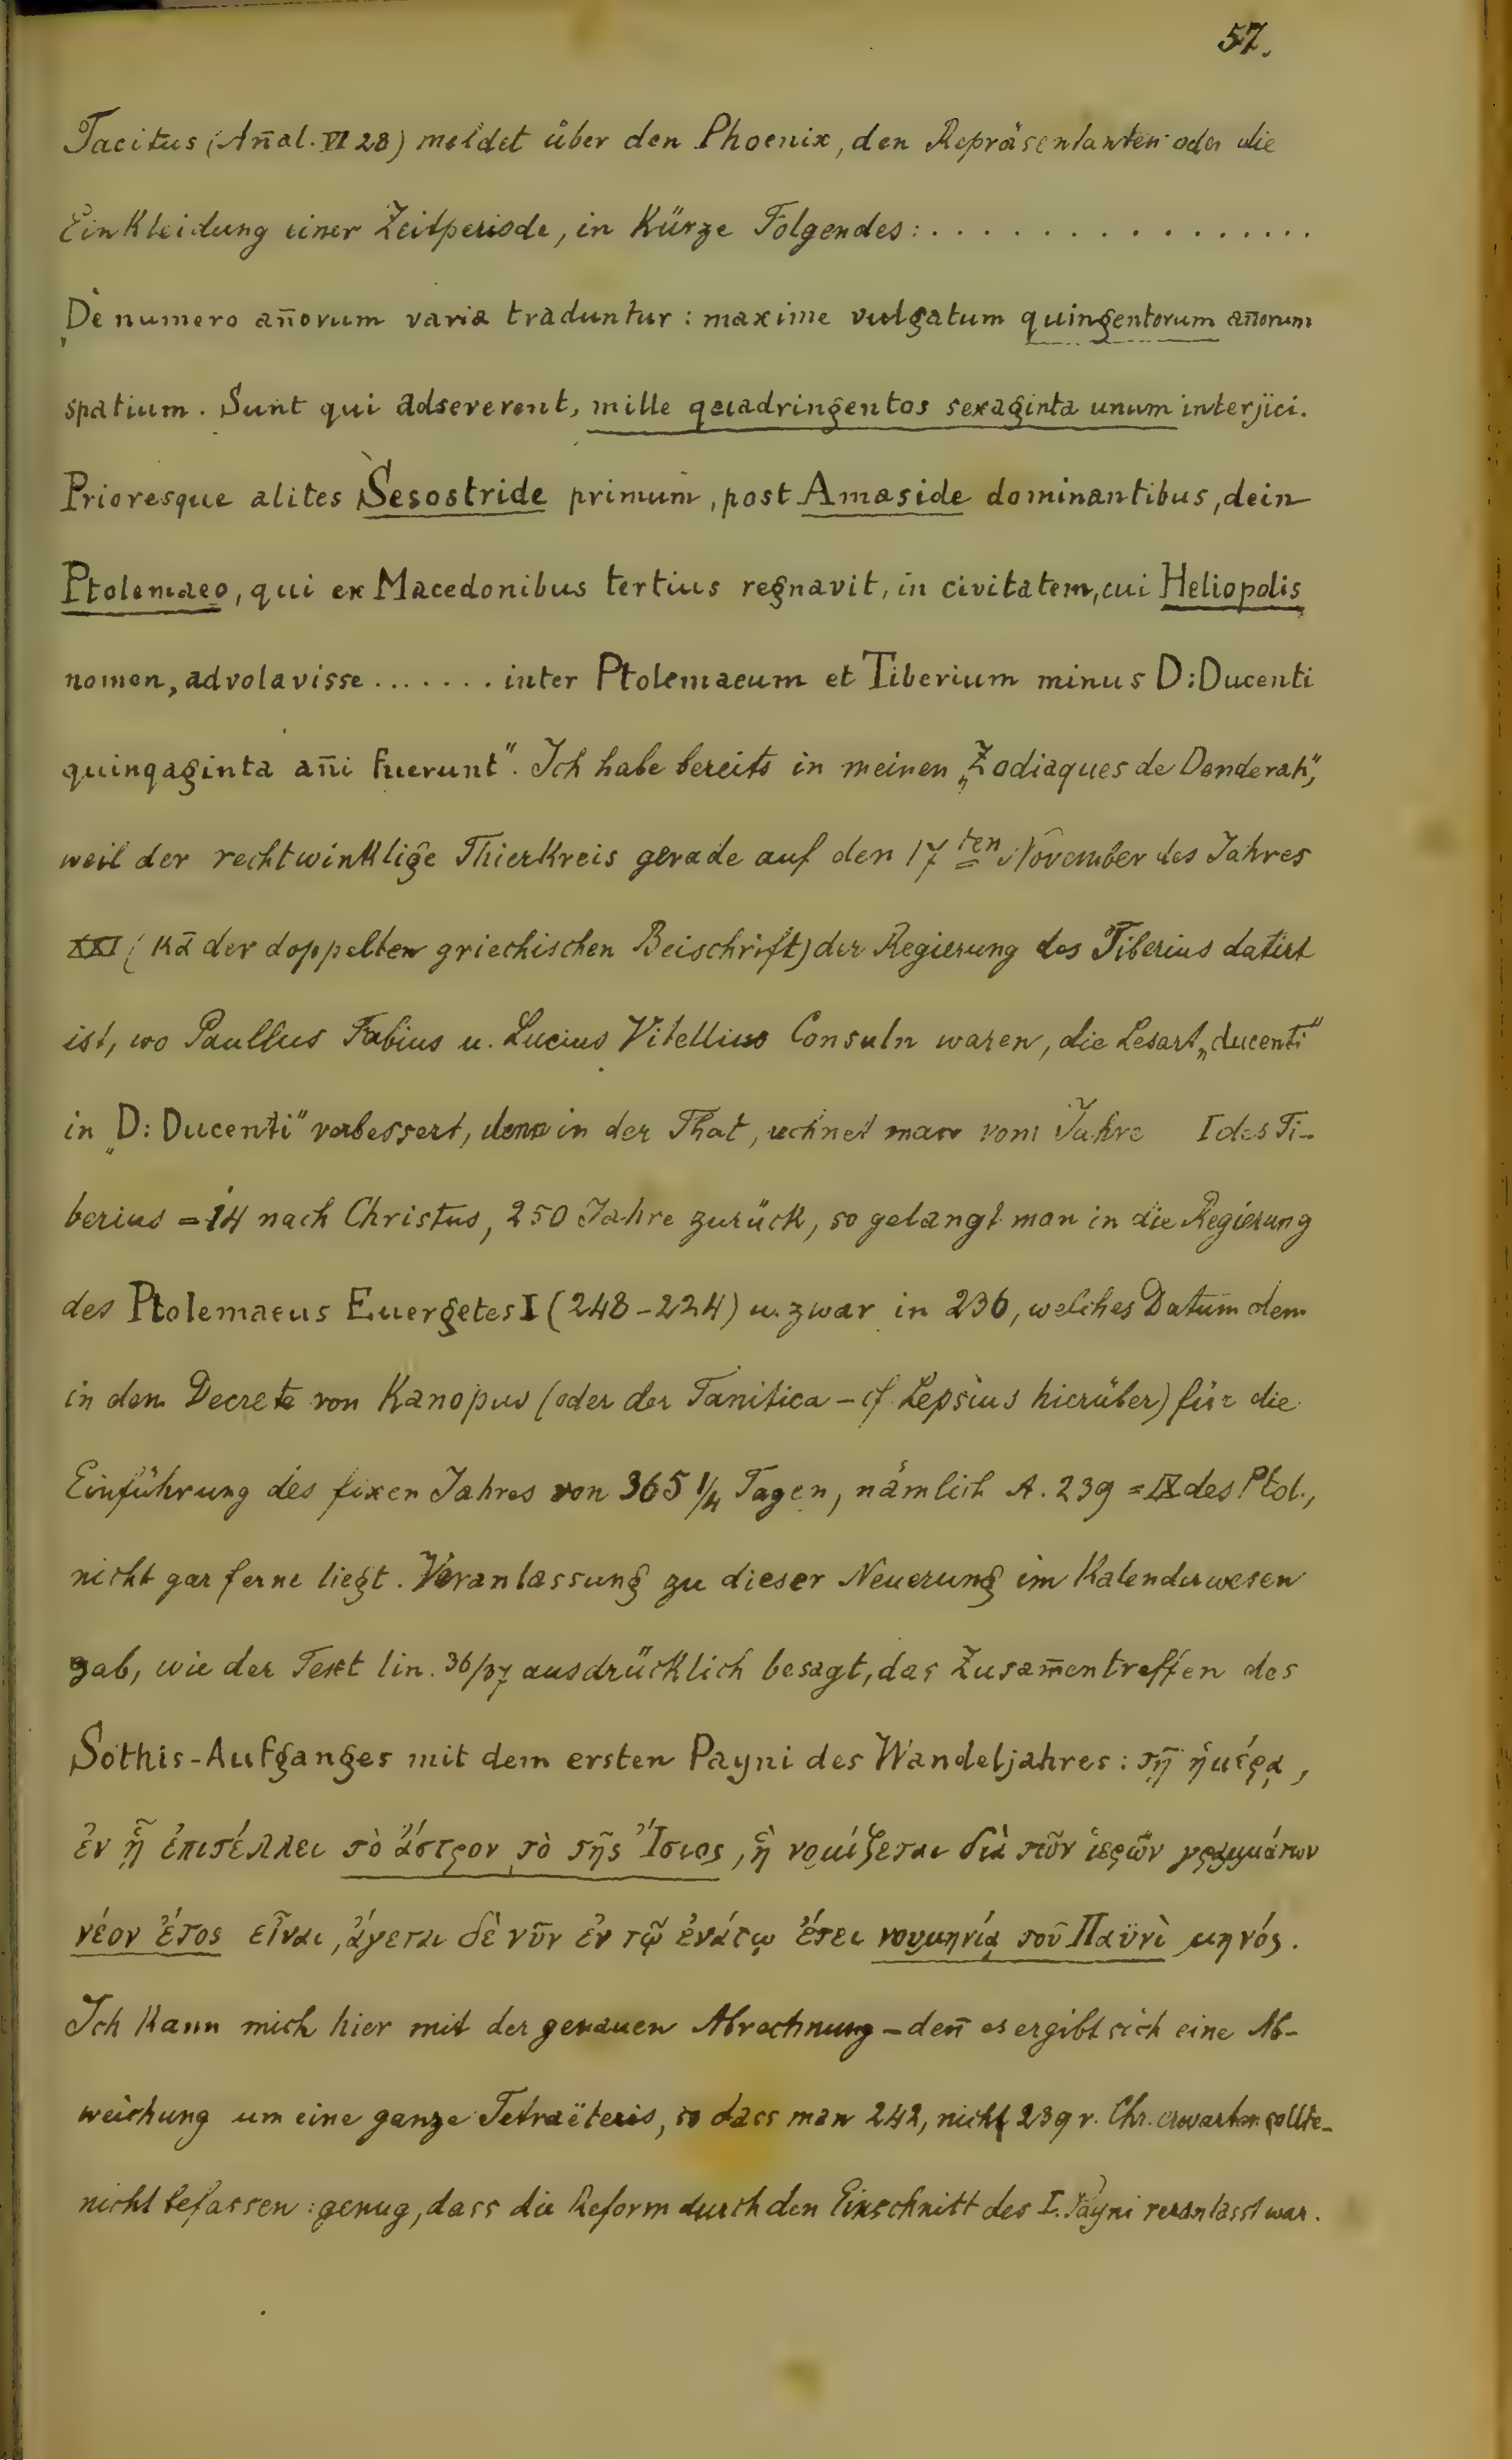 57.
Tacitus (Añal. VI 28) meldet über den Phoenix, den Repräsentanten oder die
Einkleidung einer Zeitperiode, in Kürze Folgendes: . . . . . . . . . . . . . . . . .
„De numero an̄orum varia traduntur : maxime vulgatum quingentorum an̄orum
spatium. Sunt qui adseverent, mille quadringentos sexaginta unum interjici.
Prioresque alites Sesostride primum, post Amaside dominantibus, dein
Ptolemaeo, qui ex Macedonibus tertius regnavit, in civitatem, cui Heliopolis
nomen, advolavisse ....... inter Ptolemaeum et Tiberium minus D:Ducenti
quinqaginta an̄i fuerunt". Ich habe bereits in meinen „Zodiaques de Denderah",
weil der rechtwinklige Thierkreis gerade auf den 17ten November des Jahres
XXI (κᾱ der doppelten griechischen Beischrift) der Regierung des Tiberius datirt
ist, wo Paullus Fabius u. Lucius Vitellius Consuln waren, die Lesart „ducenti"
in „D: Ducenti" verbessert, denn in der That, rechnet man vom Jahre I des Ti-
berius = 14 nach Christus, 250 Jahre zurück, so gelangt man in die Regierung
des Ptolemaeus Euergetes I (248-224) u. zwar in 236, welches Datum dem
in dem Decrete von Kanopus (oder der Tanitica – cf Lepsius hierüber) für die
Einführung des fixen Jahres von 365 1/4 Tagen, nämlich A. 239 = IX des Ptol.,
nicht gar ferne liegt. Veranlassung zu dieser Neuerung im Kalenderwesen
gab, wie der Text lin. 36/37 ausdrücklich besagt, das Zusam̄entreffen des
Sothis-Aufganges mit dem ersten Payni des Wandeljahres : τῇ ἡμέρᾳ,
ἐν ᾗ ἐπιτέλλει τὸ ἄστρον τὸ τῆς Ἴσιος, ἣ νομίζεται διὰ τῶν ἱερῶν γραμμάτων
νέον ἔτος εἶναι, ἄγεται δὲ νῦν ἐν τῷ ἐνάτῳ ἔτει νουμηνίᾳ τοῦ Παϋνὶ μηνός.
Ich kann mich hier mit der genauen Abrechnung – den̄ es ergibt sich eine Ab-
weichung um eine ganze Tetraëteris, so dass man 242, nicht 239 v. Chr. erwarten sollte –
nicht befassen : genug, dass die Reform durch den Einschnitt des I. Payni veranlasst war.